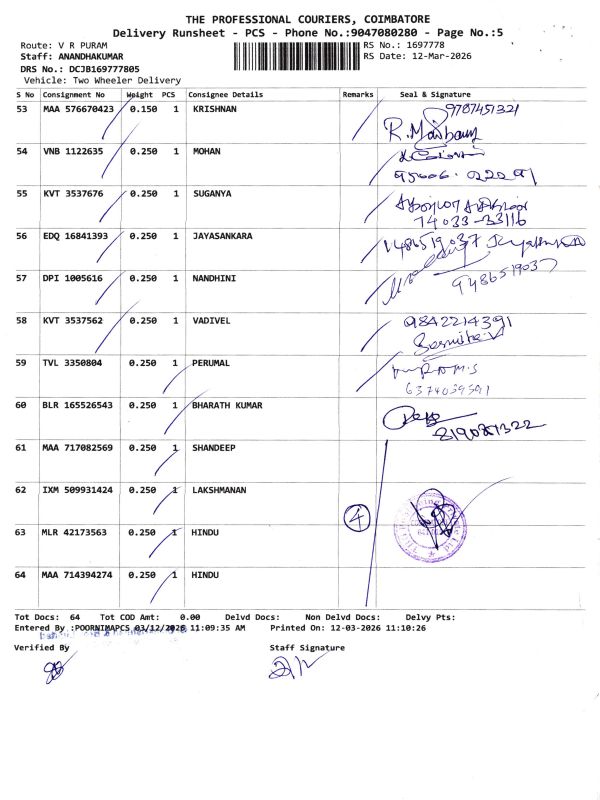 THE PROFESSIONAL COURIERS, COIMBATORE
Delivery Runsheet - PCS - Phone No.:9047080280 - Page No.:5
Route: V R PURAM RS No.: 1697778
Staff: ANANDHAKUMAR RS Date: 12-Mar-2026
DRS No.: DCJB169777805
Vehicle: Two Wheeler Delivery
S No Consignment No Weight PCS Consignee Details Remarks Seal & Signature
53 MAA 576670423 0.150 1 KRISHNAN 9787451321
54 VNB 1122635 0.250 1 MOHAN
55 KVT 3537676 0.250 1 SUGANYA
74033-33116
56 EDQ 16841393 0.250 1 JAYASANKARA
57 DPI 1005616 0.250 1 NANDHINI 9486519037
58 KVT 3537562 0.250 1 VADIVEL 9842214391
59 TVL 3350804 0.250 1 PERUMAL
6374039591
60 BLR 165526543 0.250 1 BHARATH KUMAR
61 MAA 717082569 0.250 1 SHANDEEP
62 IXM 509931424 0.250 1 LAKSHMANAN
4
63 MLR 42173563 0.250 1 HINDU
64 MAA 714394274 0.250 1 HINDU
Tot Docs: 64 Tot COD Amt: 0.00 Delvd Docs: Non Delvd Docs: Delvy Pts:
Entered By :POORNIMAPCS 03/12/2026 11:09:35 AM Printed On: 12-03-2026 11:10:26
Verified By Staff Signature